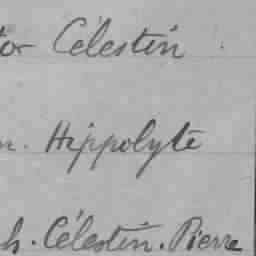 or Célestin
n. Hippolyte
h. Célestin. Pierre